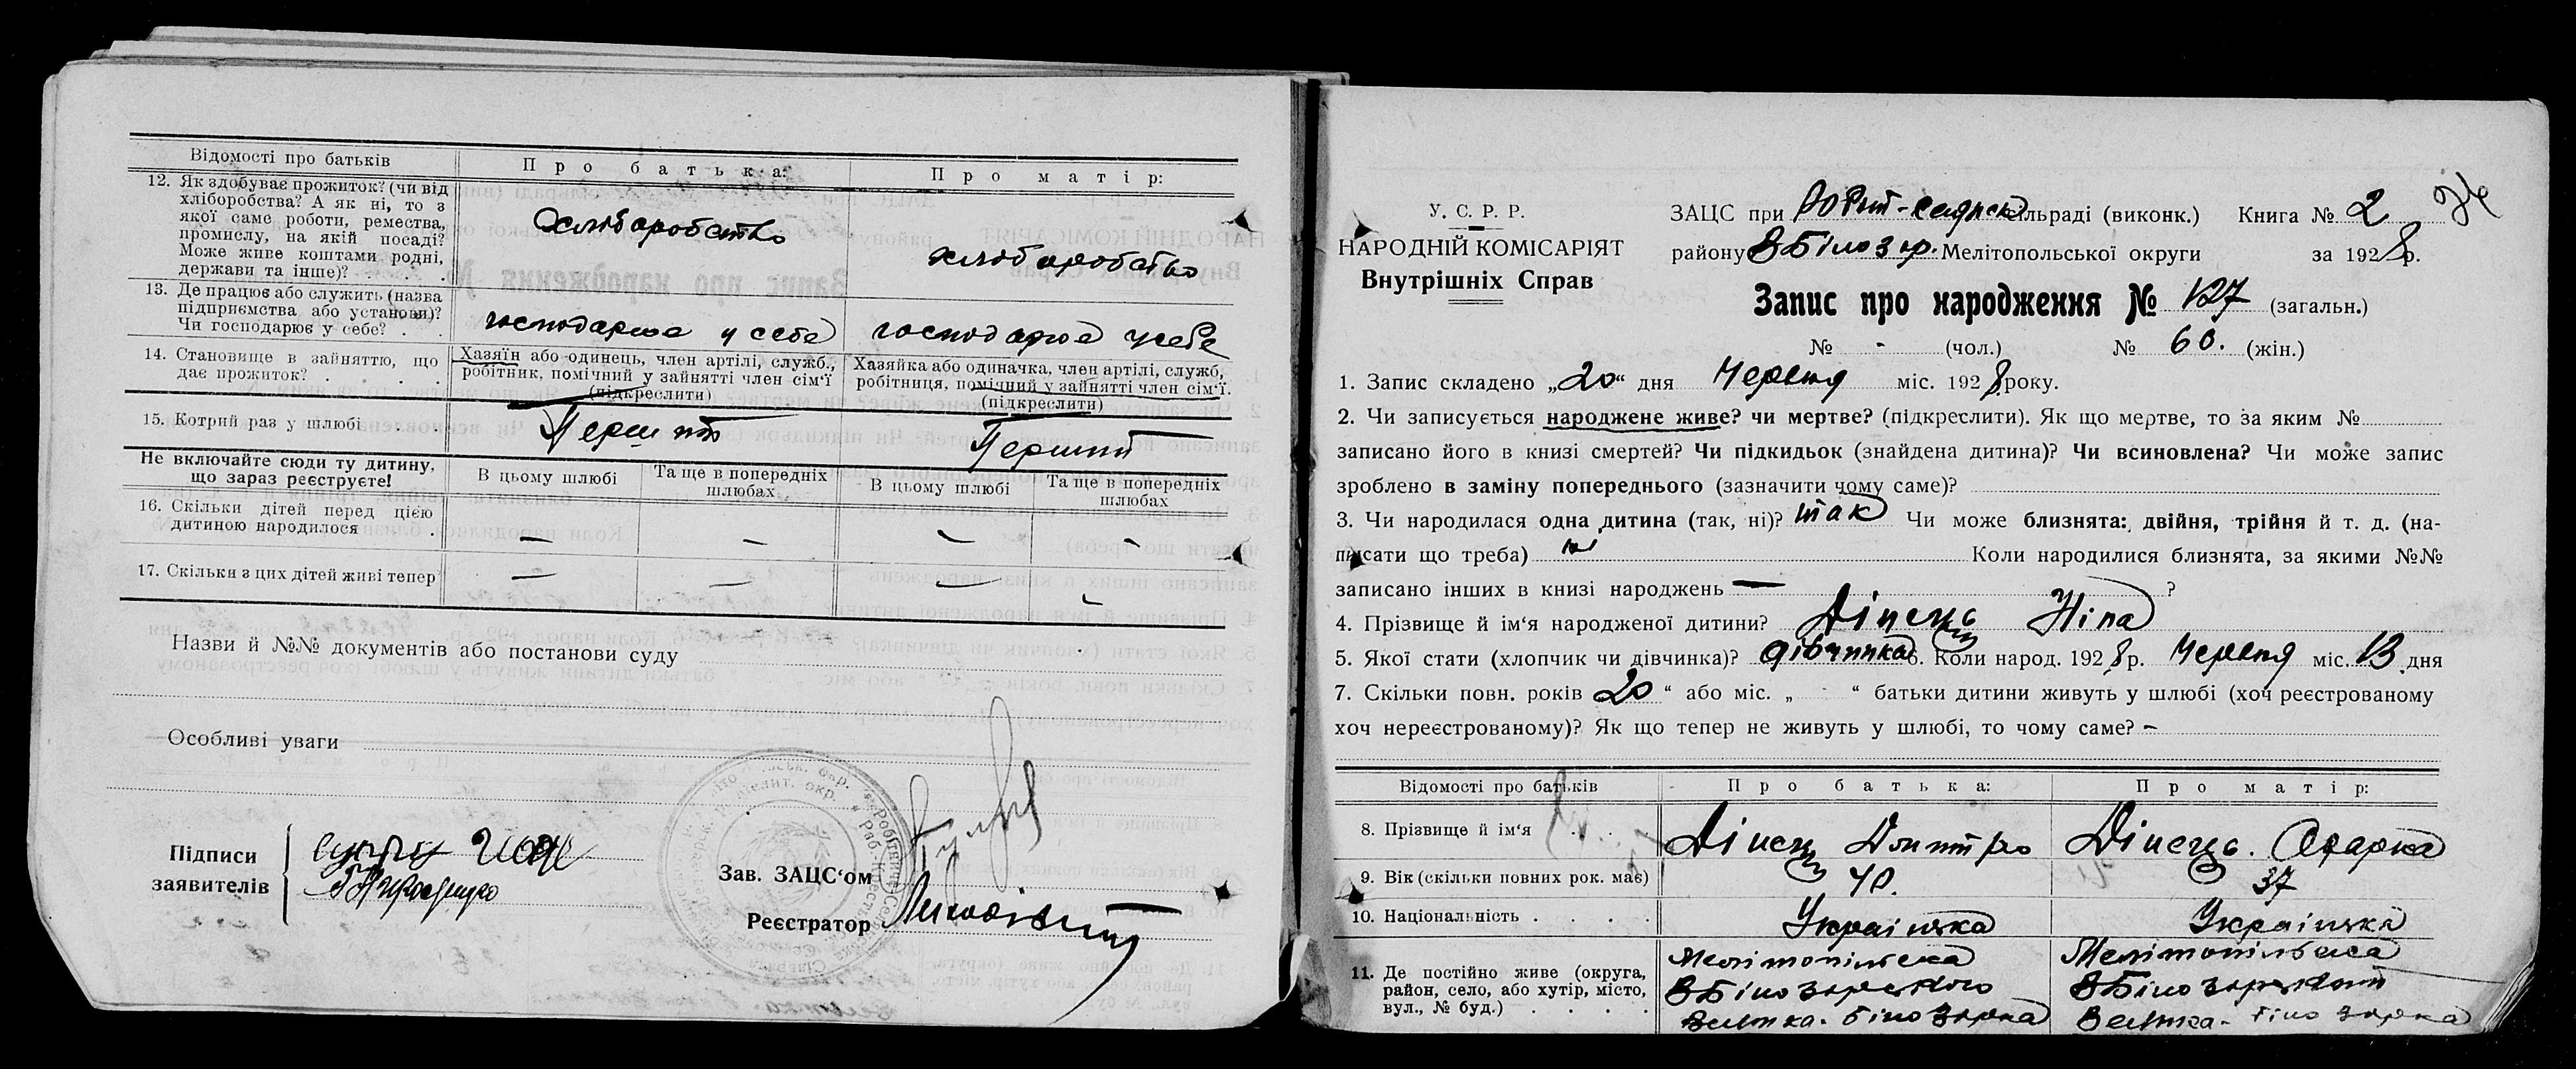 Відомості про батьків
Про батька:
Про матір:
12. Як здобуває прожиток? (чи від
хліборобства? А як ні, то з
якої саме роботи, ремества,
промислу, на якій посаді?
Може живе коштами родні,
держави та інше)? . . .
хліборобство
хліборобство
13. Де працює або служить (назва
підприємства або установи)?
Чи господарює у себе? . .
господарює у себе
господарює у себе
14. Становище в зайняттю, що
дає прожиток? . . . .
Хазяїн або одинець, член артілі, служб.,
робітник, помічний у зайнятті член сім'ї
(підкреслити)
Хазяйка або одиначка, член артілі, служб,
робітниця, помічний у зайнятті член сім'ї.
(підкреслити)
15. Котрий раз у шлюбі . .
Перший
Перший
Не включайте сюди ту дитину,
що зараз реєструєте!
В цьому шлюбі
Та ще в попередніх
шлюбах
В цьому шлюбі
Та ще в попередніх
шлюбах
16. Скільки дітей перед цією
дитиною народилося .
— — — —
17. Скільки з цих дітей живі тепер
— — — —
Назви й №№ документів або постанови суду
Особливі уваги
Підписи
заявителів
Зав. ЗАЦС'ом
Реєстратор
У. С. Р. Р.
НАРОДНІЙ КОМІСАРІЯТ
Внутрішніх Справ
ЗАЦС при сільраді (виконк.) Книга № 2
району ВБілозір. Мелітопольської округи за 1928 р.
Запис про народження № 127 (загальн.)
№ - (чол.) № 60. (жін.)
1. Запис складено „20“ дня Червня міс. 1928 року.
2. Чи записується народжене живе? чи мертве? (підкреслити). Як що мертве, то за яким №
записано його в книзі смертей? Чи підкидьок (знайдена дитина)? Чи всиновлена? Чи може запис
зроблено в заміну попереднього (зазначити чому саме)?
3. Чи народилася одна дитина (так, ні)? так Чи може близнята: двійня, трійня й т. д. (на-
писати що треба) Коли народилися близнята, за якими №№
записано інших в книзі народжень — ?
4. Прізвище й ім'я народженої дитини? Ніна
5. Якої стати (хлопчик чи дівчинка)? дівчинка 6. Коли народ. 1928 р. Червня міс. 13 дня
7. Скільки повн. років 20 “ або міс. „ - “ батьки дитини живуть у шлюбі (хоч реєстрованому
хоч нереєстрованому)? Як що тепер не живуть у шлюбі, то чому саме? –
Відомості про батьків
Про батька:
Про матір:
8. Прізвище й ім'я . . .
Дмитро
9. Вік (скільки повних рок. має)
40.
37
10. Національність . . . .
Українка
Українка
11. Де постійно живе (округа,
район, село, або хутір, місто,
вул., № буд.) . . . .
Мелітопільська
ВБілозірського
Велика-Білозірка
Мелітопільська
ВБілозірський
Велика-Білозірка